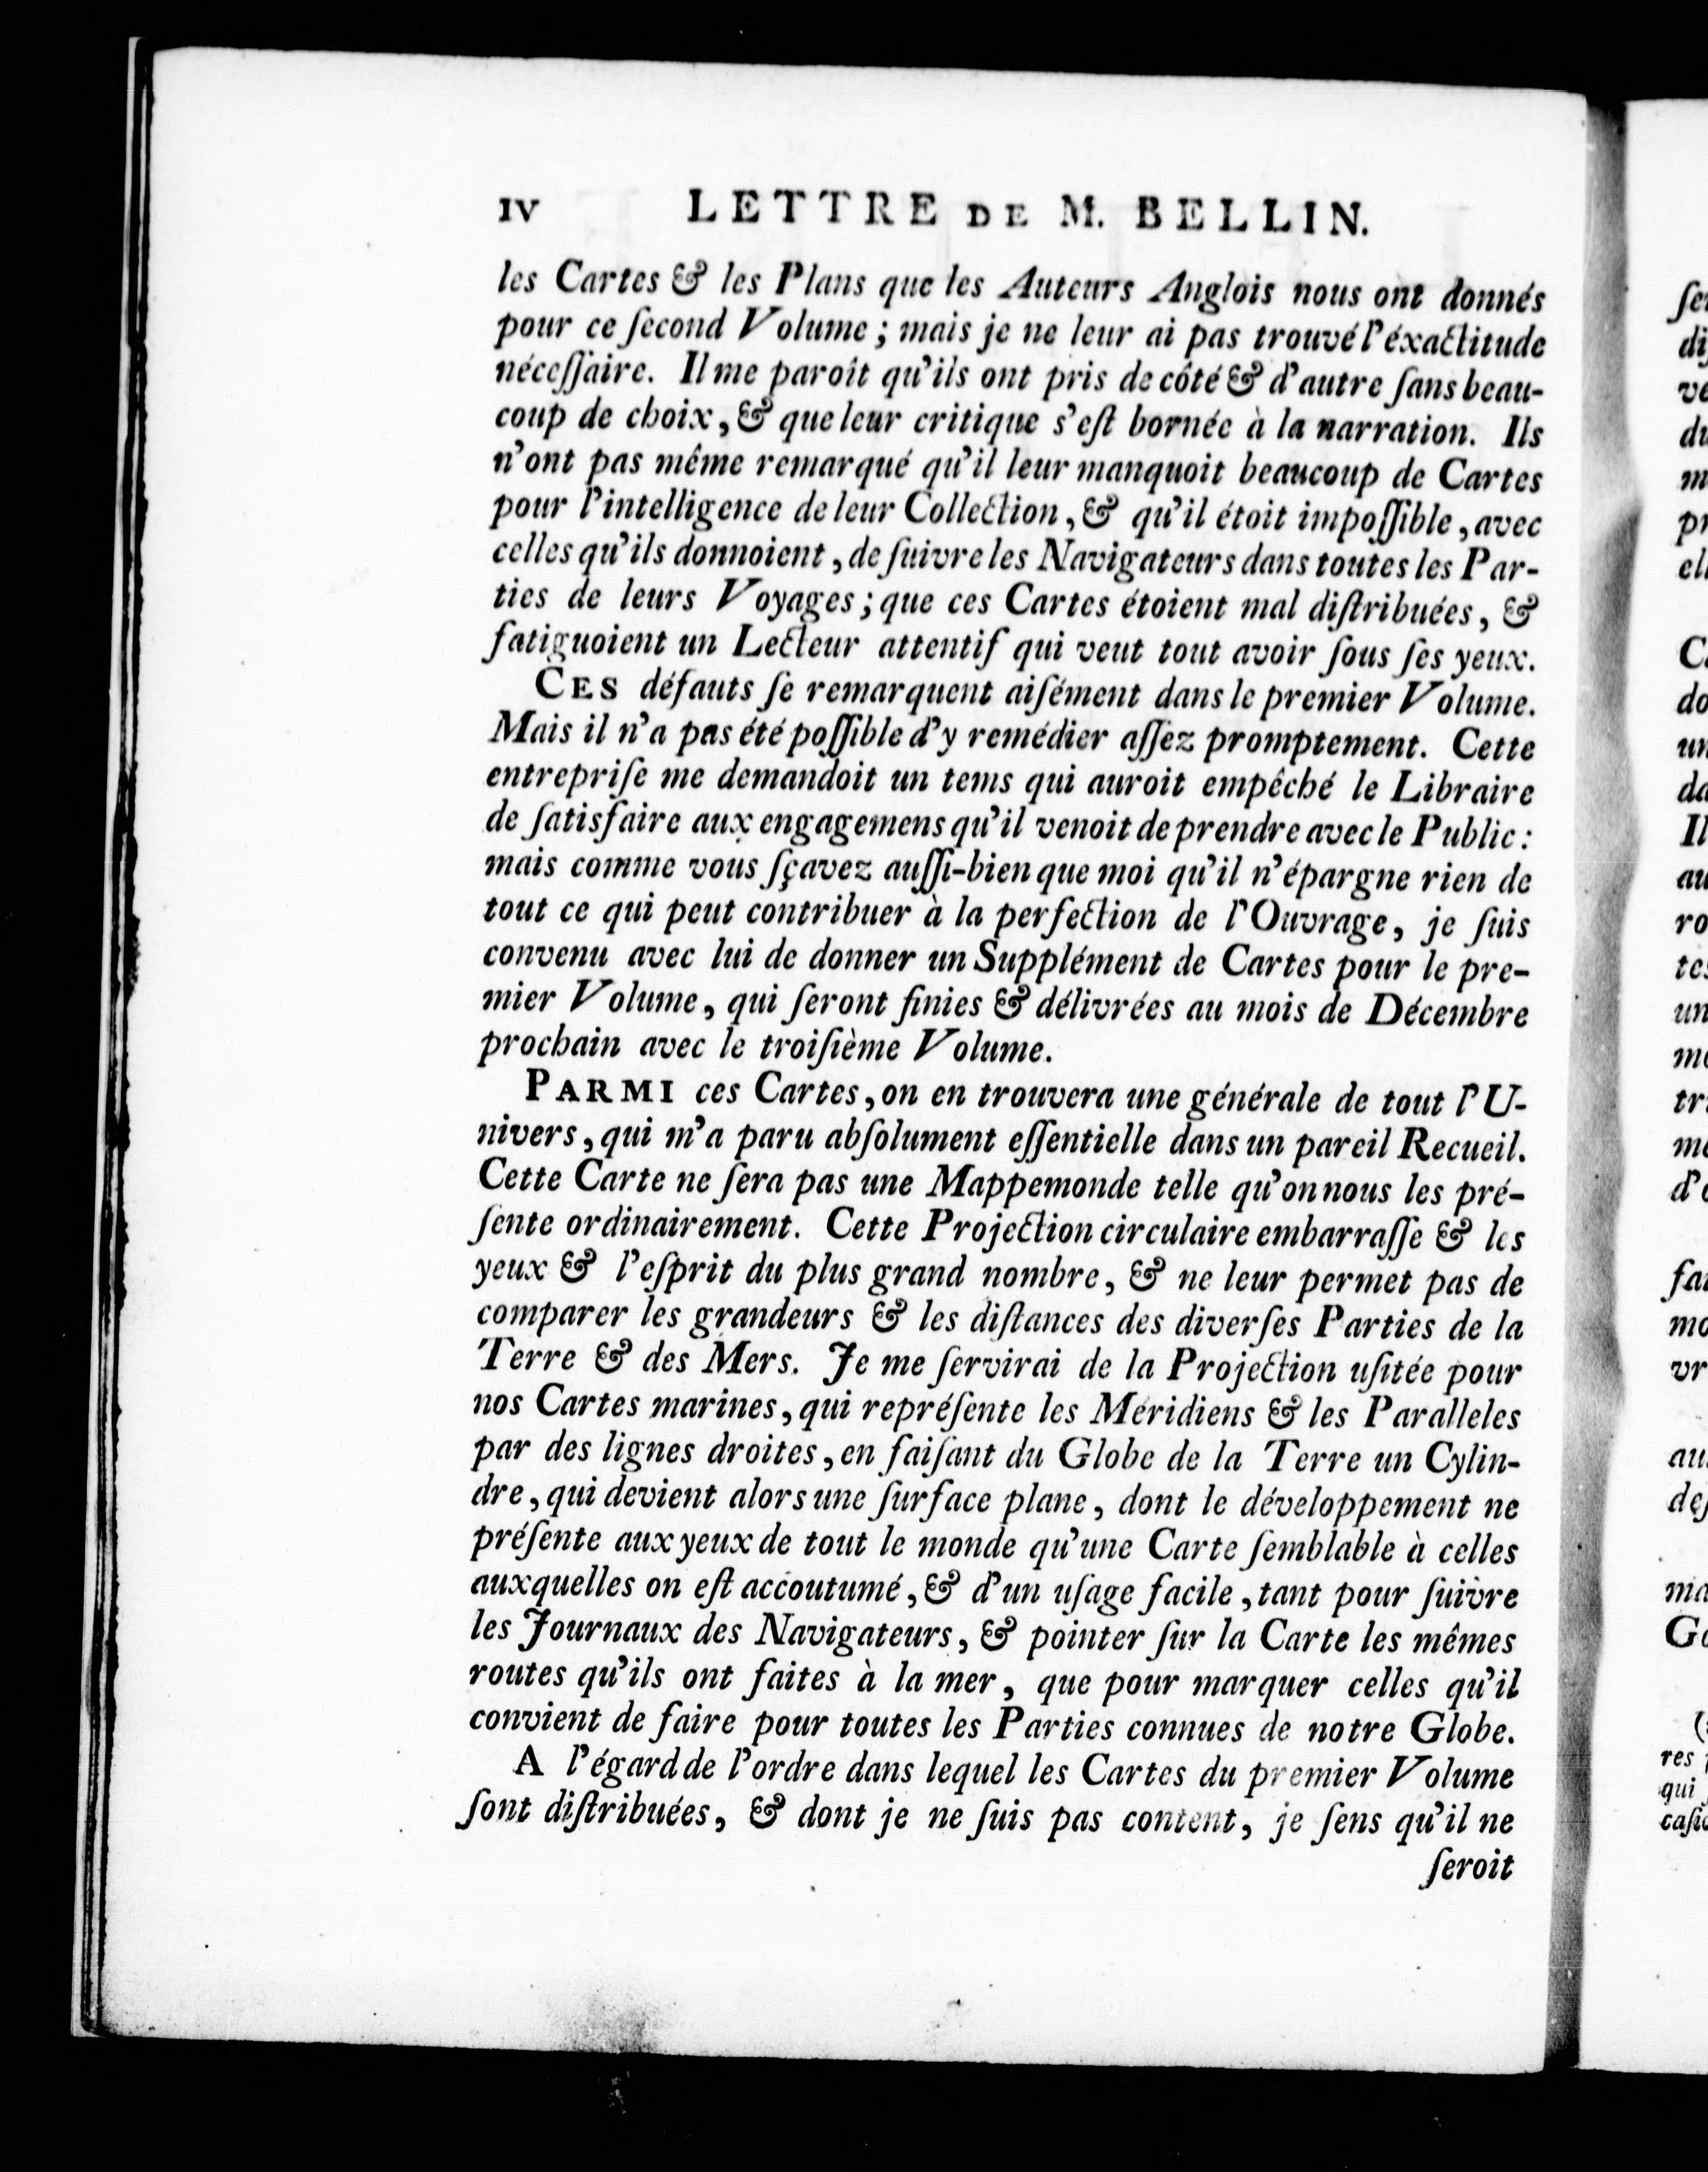 IV LETTRE DE M. BELLIN.
les Cartes & les Plans que les Auteurs Anglois nous ont donnés
pour ce ſecond Volume ; mais je ne leur ai pas trouvé l'éxactitude
néceſſaire. Il me paroît qu'ils ont pris de côté & d'autre ſans beau-
coup de choix, & que leur critique s'eſt bornée à la narration. Ils
n'ont pas même remarqué qu'il leur manquoit beaucoup de Cartes
pour l'intelligence de leur Collection, & qu'il étoit impoſſible, avec
celles qu'ils donnoient, de ſuivre les Navigateurs dans toutes les Par-
ties de leurs Voyages ; que ces Cartes étoient mal diſtribuées, &
fatiguoient un Lecteur attentif qui veut tout avoir ſous ſes yeux.
CES défauts ſe remarquent aiſément dans le premier Volume.
Mais il n'a pas été poſſible d'y remédier aſſez promptement. Cette
entrepriſe me demandoit un tems qui auroit empêché le Libraire
de ſatisfaire aux engagemens qu'il venoit de prendre avec le Public :
mais comme vous ſçavez auſſi-bien que moi qu'il n'épargne rien de
tout ce qui peut contribuer à la perfection de l'Ouvrage, je ſuis
convenu avec lui de donner un Supplément de Cartes pour le pre-
mier Volume, qui ſeront finies & délivrées au mois de Décembre
prochain avec le troiſième Volume.
PARMI ces Cartes, on en trouvera une générale de tout l'U-
nivers, qui m'a paru abſolument eſſentielle dans un pareil Recueil.
Cette Carte ne ſera pas une Mappemonde telle qu'on nous les pré-
ſente ordinairement. Cette Projection circulaire embarraſſe & les
yeux & l'eſprit du plus grand nombre, & ne leur permet pas de
comparer les grandeurs & les diſtances des diverſes Parties de la
Terre & des Mers. Je me ſervirai de la Projection uſitée pour
nos Cartes marines, qui repréſente les Méridiens & les Paralleles
par des lignes droites, en faiſant du Globe de la Terre un Cylin-
dre, qui devient alors une ſurface plane, dont le développement ne
préſente aux yeux de tout le monde qu'une Carte ſemblable à celles
auxquelles on eſt accoutumé, & d'un uſage facile, tant pour ſuivre
les Journaux des Navigateurs, & pointer ſur la Carte les mêmes
routes qu'ils ont faites à la mer, que pour marquer celles qu'il
convient de faire pour toutes les Parties connues de notre Globe.
A l'égard de l'ordre dans lequel les Cartes du premier Volume
ſont diſtribuées, & dont je ne ſuis pas content, je ſens qu'il ne
ſeroit